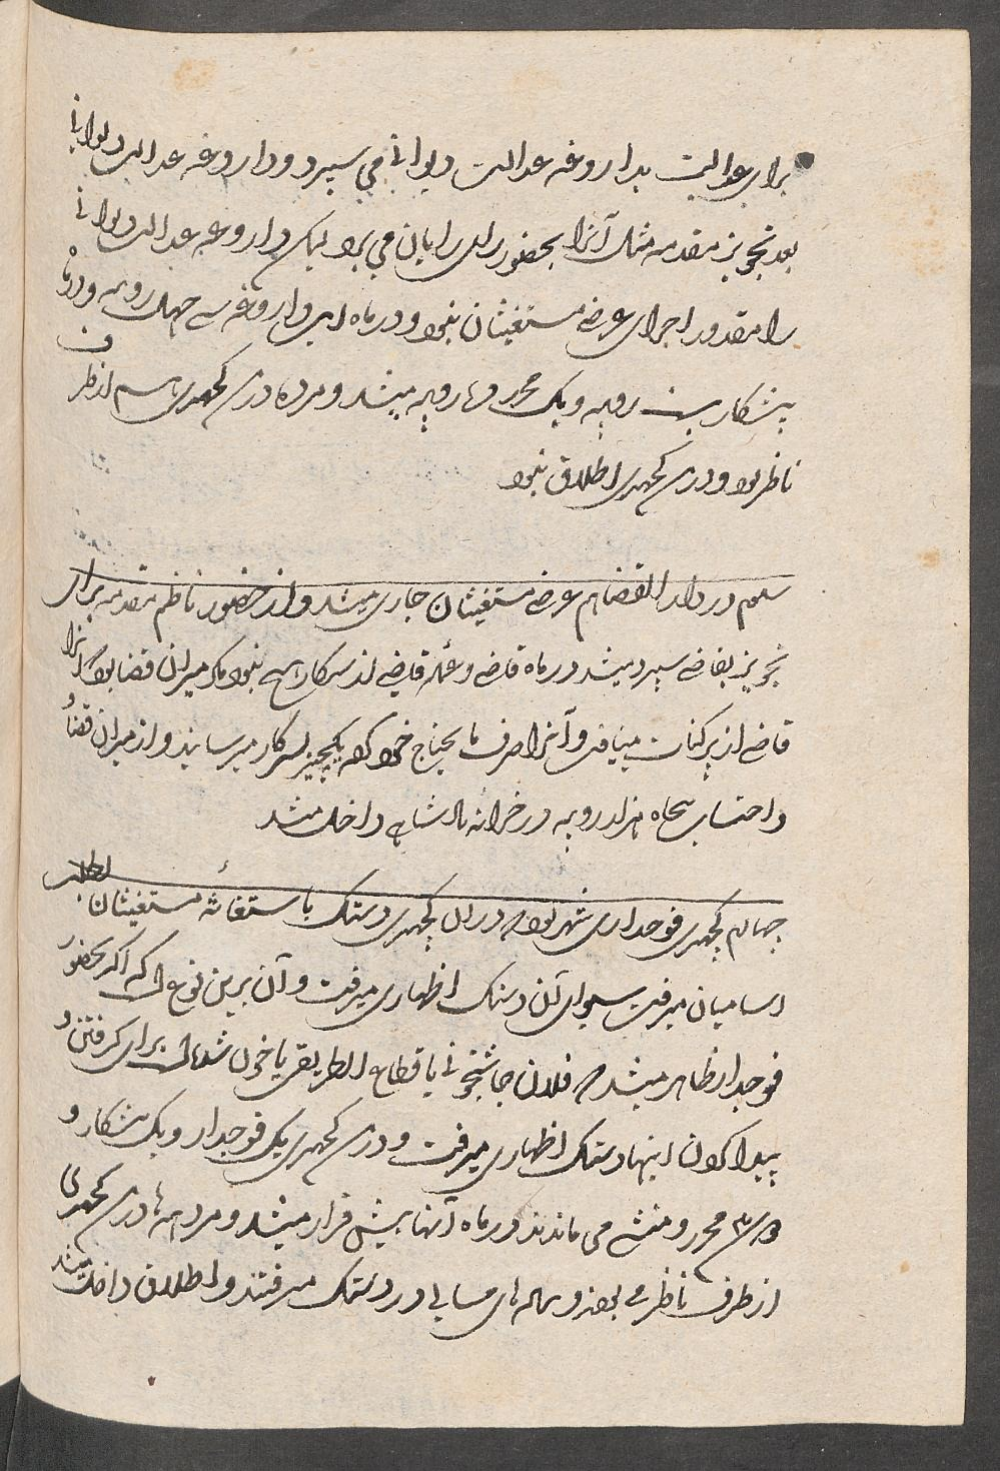 برای عدالت بداروغه عدالت دیوانی می سپرد و داروغه عدالت دیوانی
بعد تجویز مقدمه مثل آنرا بحضور رای رایان می برد لیکن داروغه عدالت دیوانی
را مقدور اجرای عرضی مستغیثان نبود و درماهه این داروغه سی چهل روپیه و درماهه
پیشکار بیست روپیه و یک محرر ده روپیه میشد و مردهادر کچهری باسم از طرف
ناظر بود و درین کچهری اطلاق نبود
سوم در دار القضا هم عرضی مستغیثان جاری میشد و از حضور ناظم مقدمه برای
تجویز بقاضی سپرد میشد درماهه قاضی و عمله قاضی از سرکار هیچ نبود مگر میران قضا بود که آنرا
قاضی از پرکنات مییافت و آنرا صرف مایحتاج خود کرده یکچیز بسرکار میرسانید و از میران قضا و
و احتساب پنجاه هزار روپیه در خزانه بادشاهی داخل میشد
چهارم کچهری فوجداری شهر بود و در ان کچهری دستک باستغاثه مستغیثان بطلب
اسامیان میرفت سوای آن دستک اظهاری میرفت و آن برین نوع است که اگر بحضور
فوجدار ظاهر میشد که فلان جا شبخونی یا قطاع الطریقی یا خون شده است برای گرفتن و
پیدا کردن اینها دستک اظهاری میرفت و درین کچهری یک فوجدار و یک پیشکار و
محرر و منشی می ماندند درماهه آنها بیش قرار میشد و مردهه ها درین کچهری
از طرف ناظر می بودند و پیاده های مسایل در دستک میرفتند و اطلاق داخل میشد